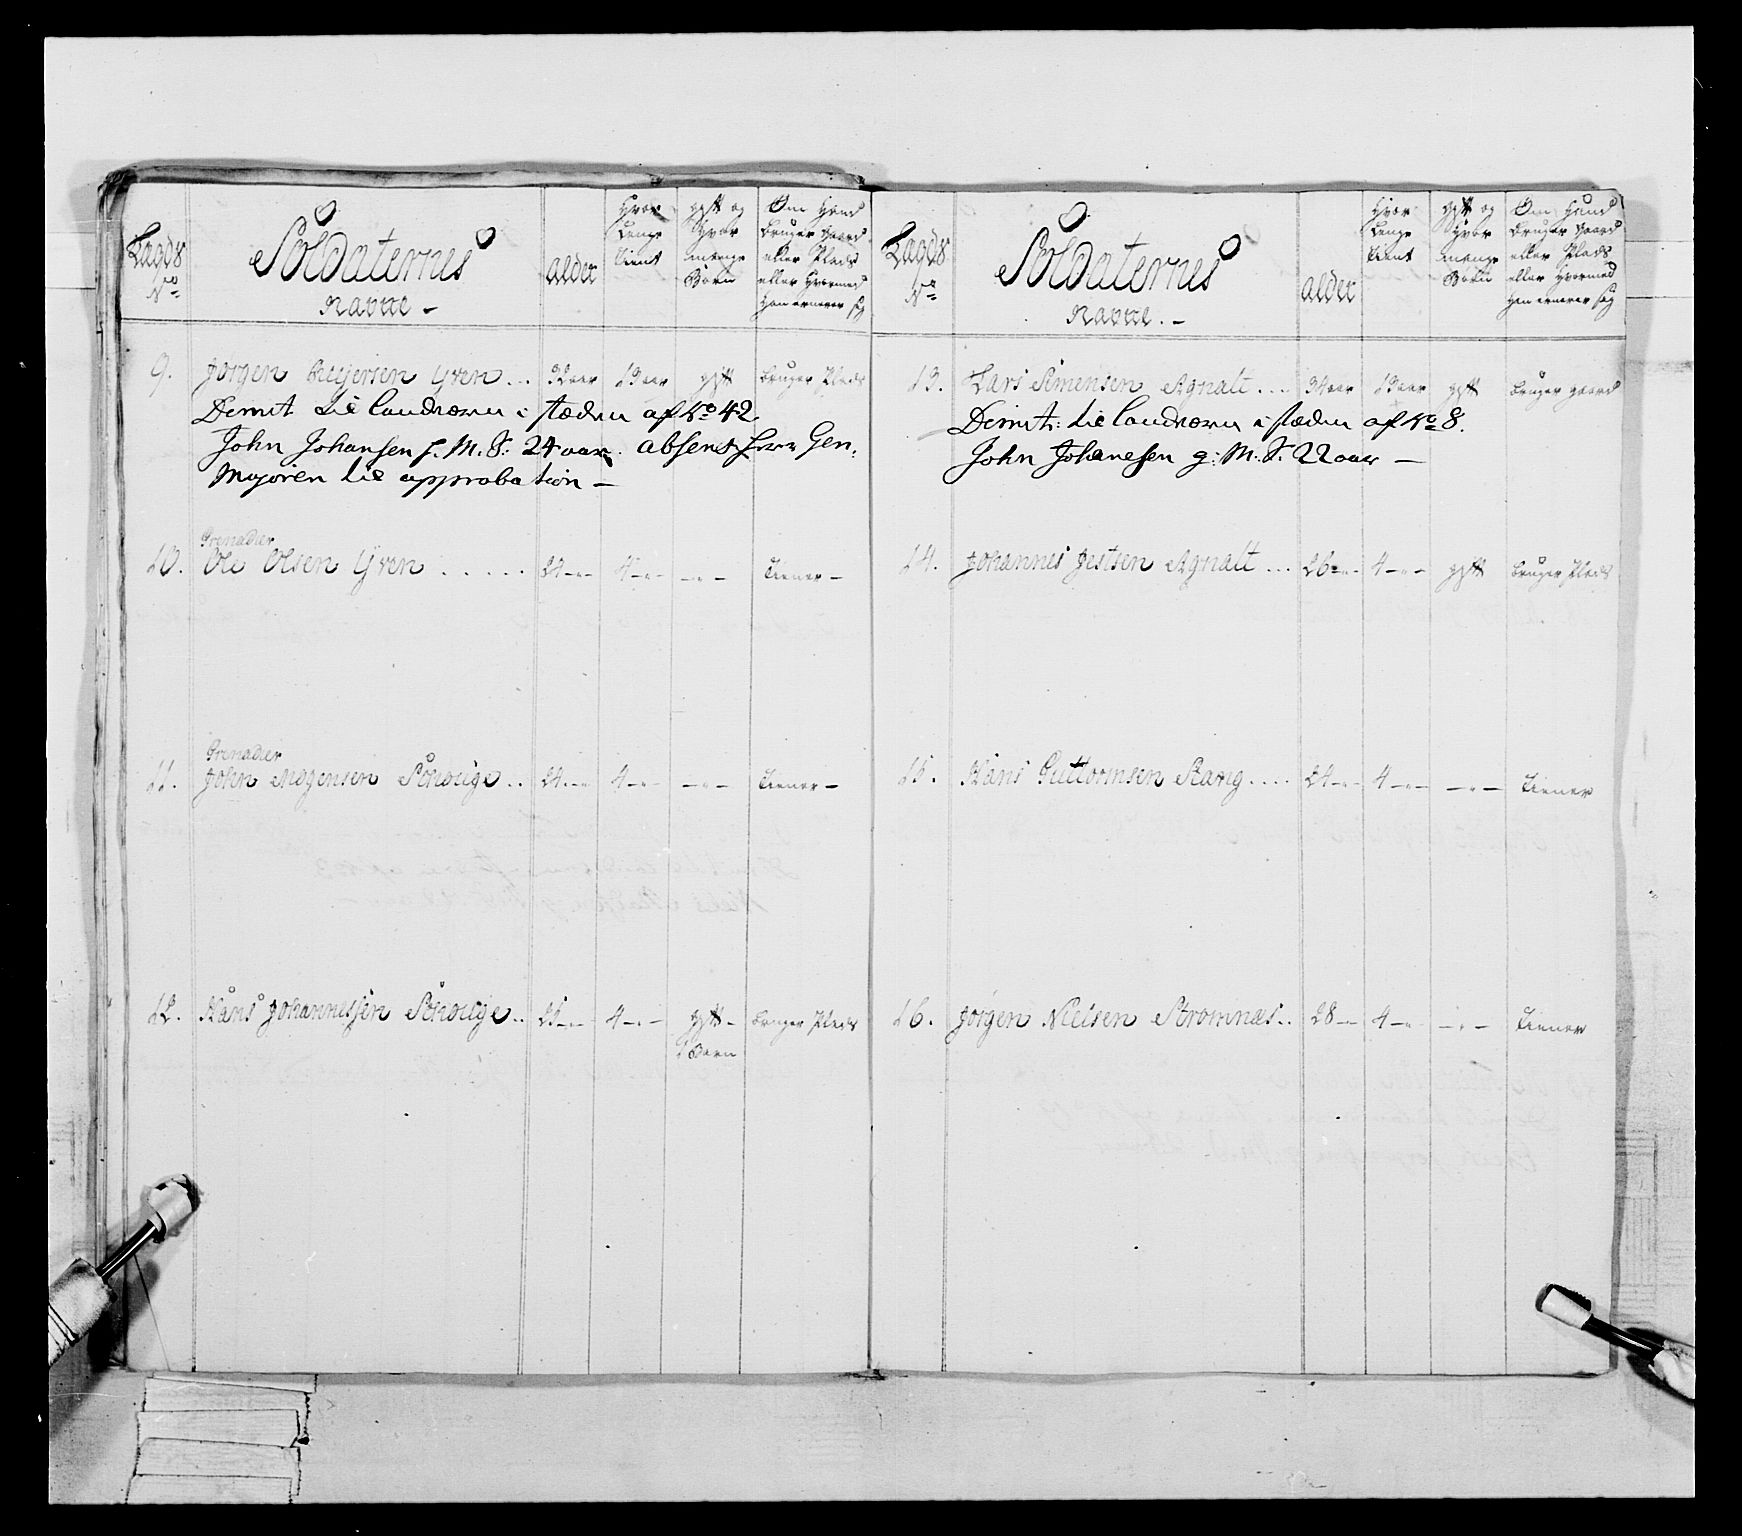 Lægds No
Soldaternes Navne -
alder
Hvor Lenge tient
gift og Hvor mange Børn
Om Hand bruger gaard eller Plads eller Hvormed Han ernerer sig
9. Jørgen Reyersen Gren .. 32 aar 13 aar gift bruger Plads
Demit til landværn i stæden af No 42.
John Johansen f. M. S: 24 aar. absent Herr Gen:
Majoren til approbation -
Grenadier
10. Ole Olsen Gren ..... 24 - - 4 - - - - - Tiener -
Grenadier
11. John Mogensen Schouge .. 24 - - 4 - - - - - Tiener -
12. Hans Johannessen Schouge .. 25 - - 4 - - gift - bruger Plads
1 Barn
Lægds No
Soldaternes Navne. -
alder
Hvor Lenge tient
gift og Hvor mange Børn
Om Hand bruger gaard eller Plads eller Hvormed Han ernerer sig
13. Lars Simensen Agnalt .... 34 aar 13 aar gift bruger gaard
Demit: til landværn i stæden af No 8.
John Johanesen g: M. S. 22 aar -
14. Johannes Jestsen Agnalt ... 26 - - 4 - - gift bruger Plads
15. Hans Guttormsen Stang .... 24 - - 4 - - - - - Tiener
16. Jørgen Nielsen Stromnæs .. 28 - - 4 - - - - - Tiener